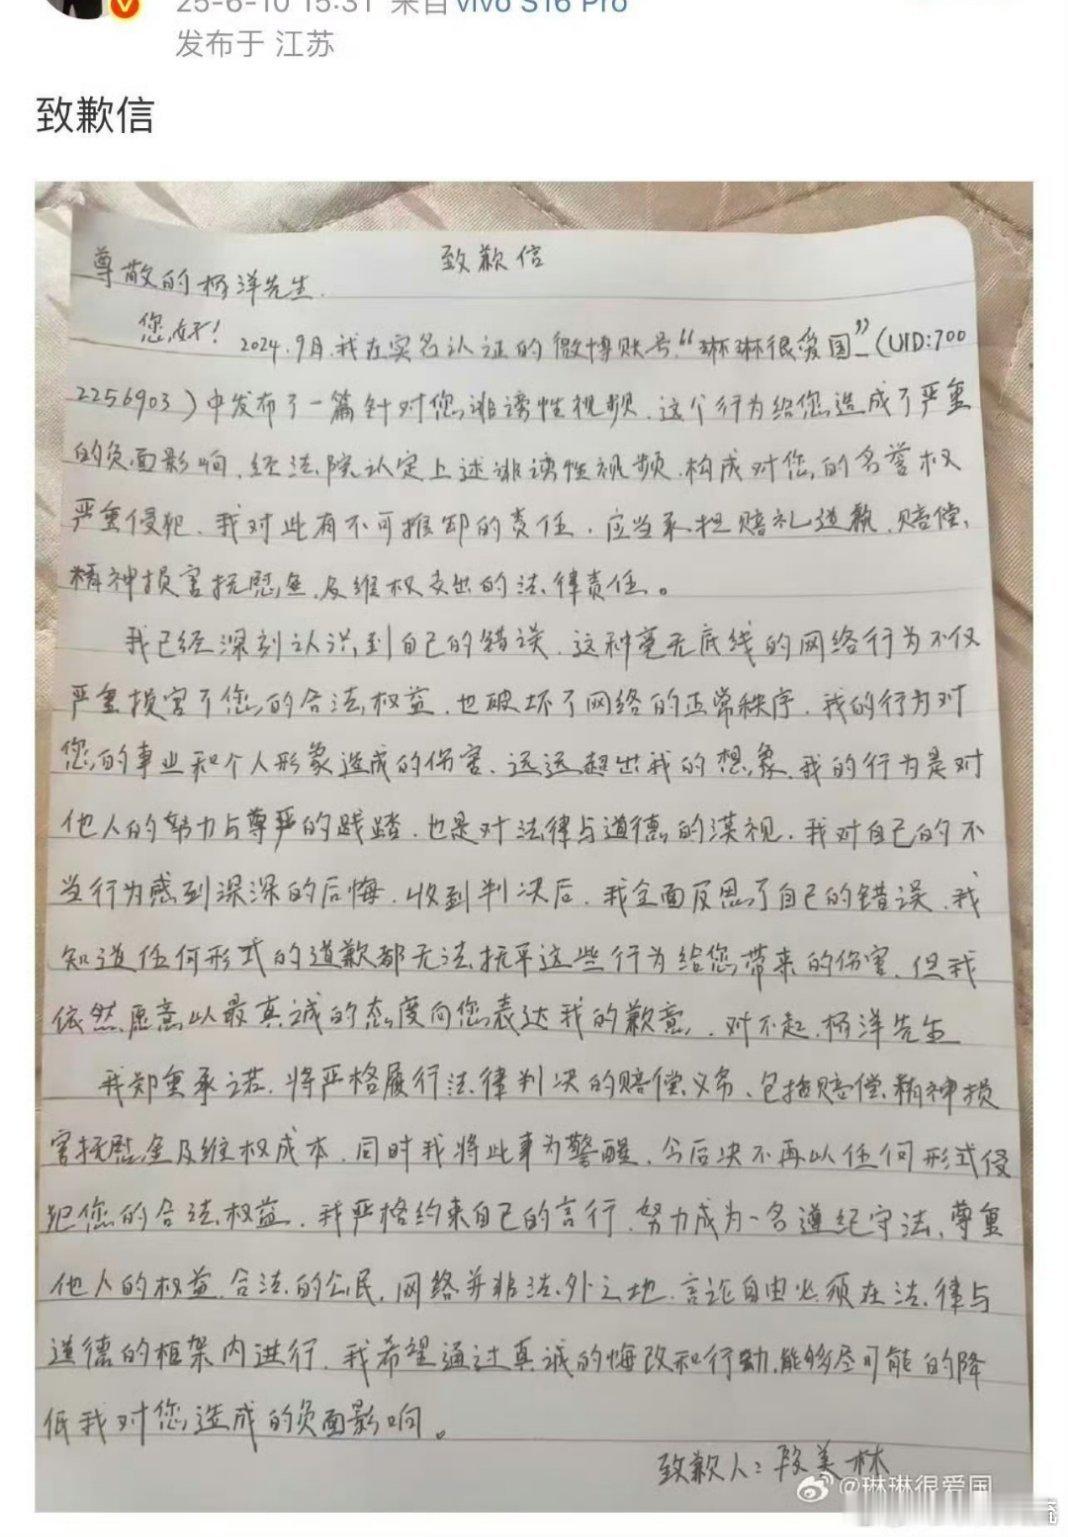 25-6-10 15:31 来自 vivo S16 Pro
发布于 江苏
致歉信
致歉信
尊敬的杨洋先生.
您好! 2024.9月,我在实名认证的微博账号“琳琳很爱国”(UID:700
2256903)中发布了一篇针对您诽谤性视频.这个行为给您造成了严重
的负面影响,经法院认定上述诽谤性视频.构成对您的名誉权
严重侵犯.我对此有不可推卸的责任.应当承担赔礼道歉.赔偿、
精神损害抚慰金.及维权支出的法律责任。
我已经深刻认识到自己的错误.这种毫无底线的网络行为不仅
严重损害了您的合法权益.也破坏了网络的正常秩序.我的行为对
您的事业和个人形象造成的伤害.远远超出我的想象.我的行为是对
他人的努力与尊严的践踏.也是对法律与道德的漠视.我对自己的不
当行为感到深深的后悔.收到判决后.我全面反思了自己的错误.我
知道任何形式的道歉都无法抚平这些行为给您带来的伤害.但我
依然愿意以最真诚的态度向您表达我的歉意.对不起.杨洋先生
我郑重承诺.将严格履行法律判决的赔偿义务、包括赔偿精神损
害抚慰金及维权成本.同时我将此事为警醒.今后决不再以任何形式侵
犯您的合法权益.我严格约束自己的言行.努力成为一名遵纪守法、尊重
他人的权益.合法的公民.网络并非法外之地.言论自由必须在法律与
道德的框架内进行.我希望通过真诚的悔改和行动.能够尽可能的降
低我对您造成的负面影响。
致歉人:段美林
@琳琳很爱国